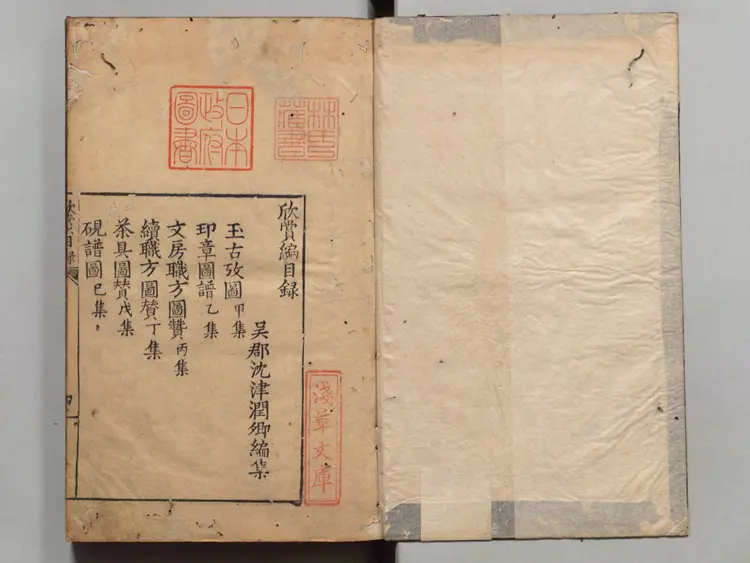 欣賞編目録
吳郡沈津潤卿編集
玉古攷圖甲集
印章圖譜乙集
文房職方圖贊丙集
續職方圖贊丁集
茶具圖贊戊集
硯譜圖已集
日本政府圖書
林氏藏書
淺草文庫